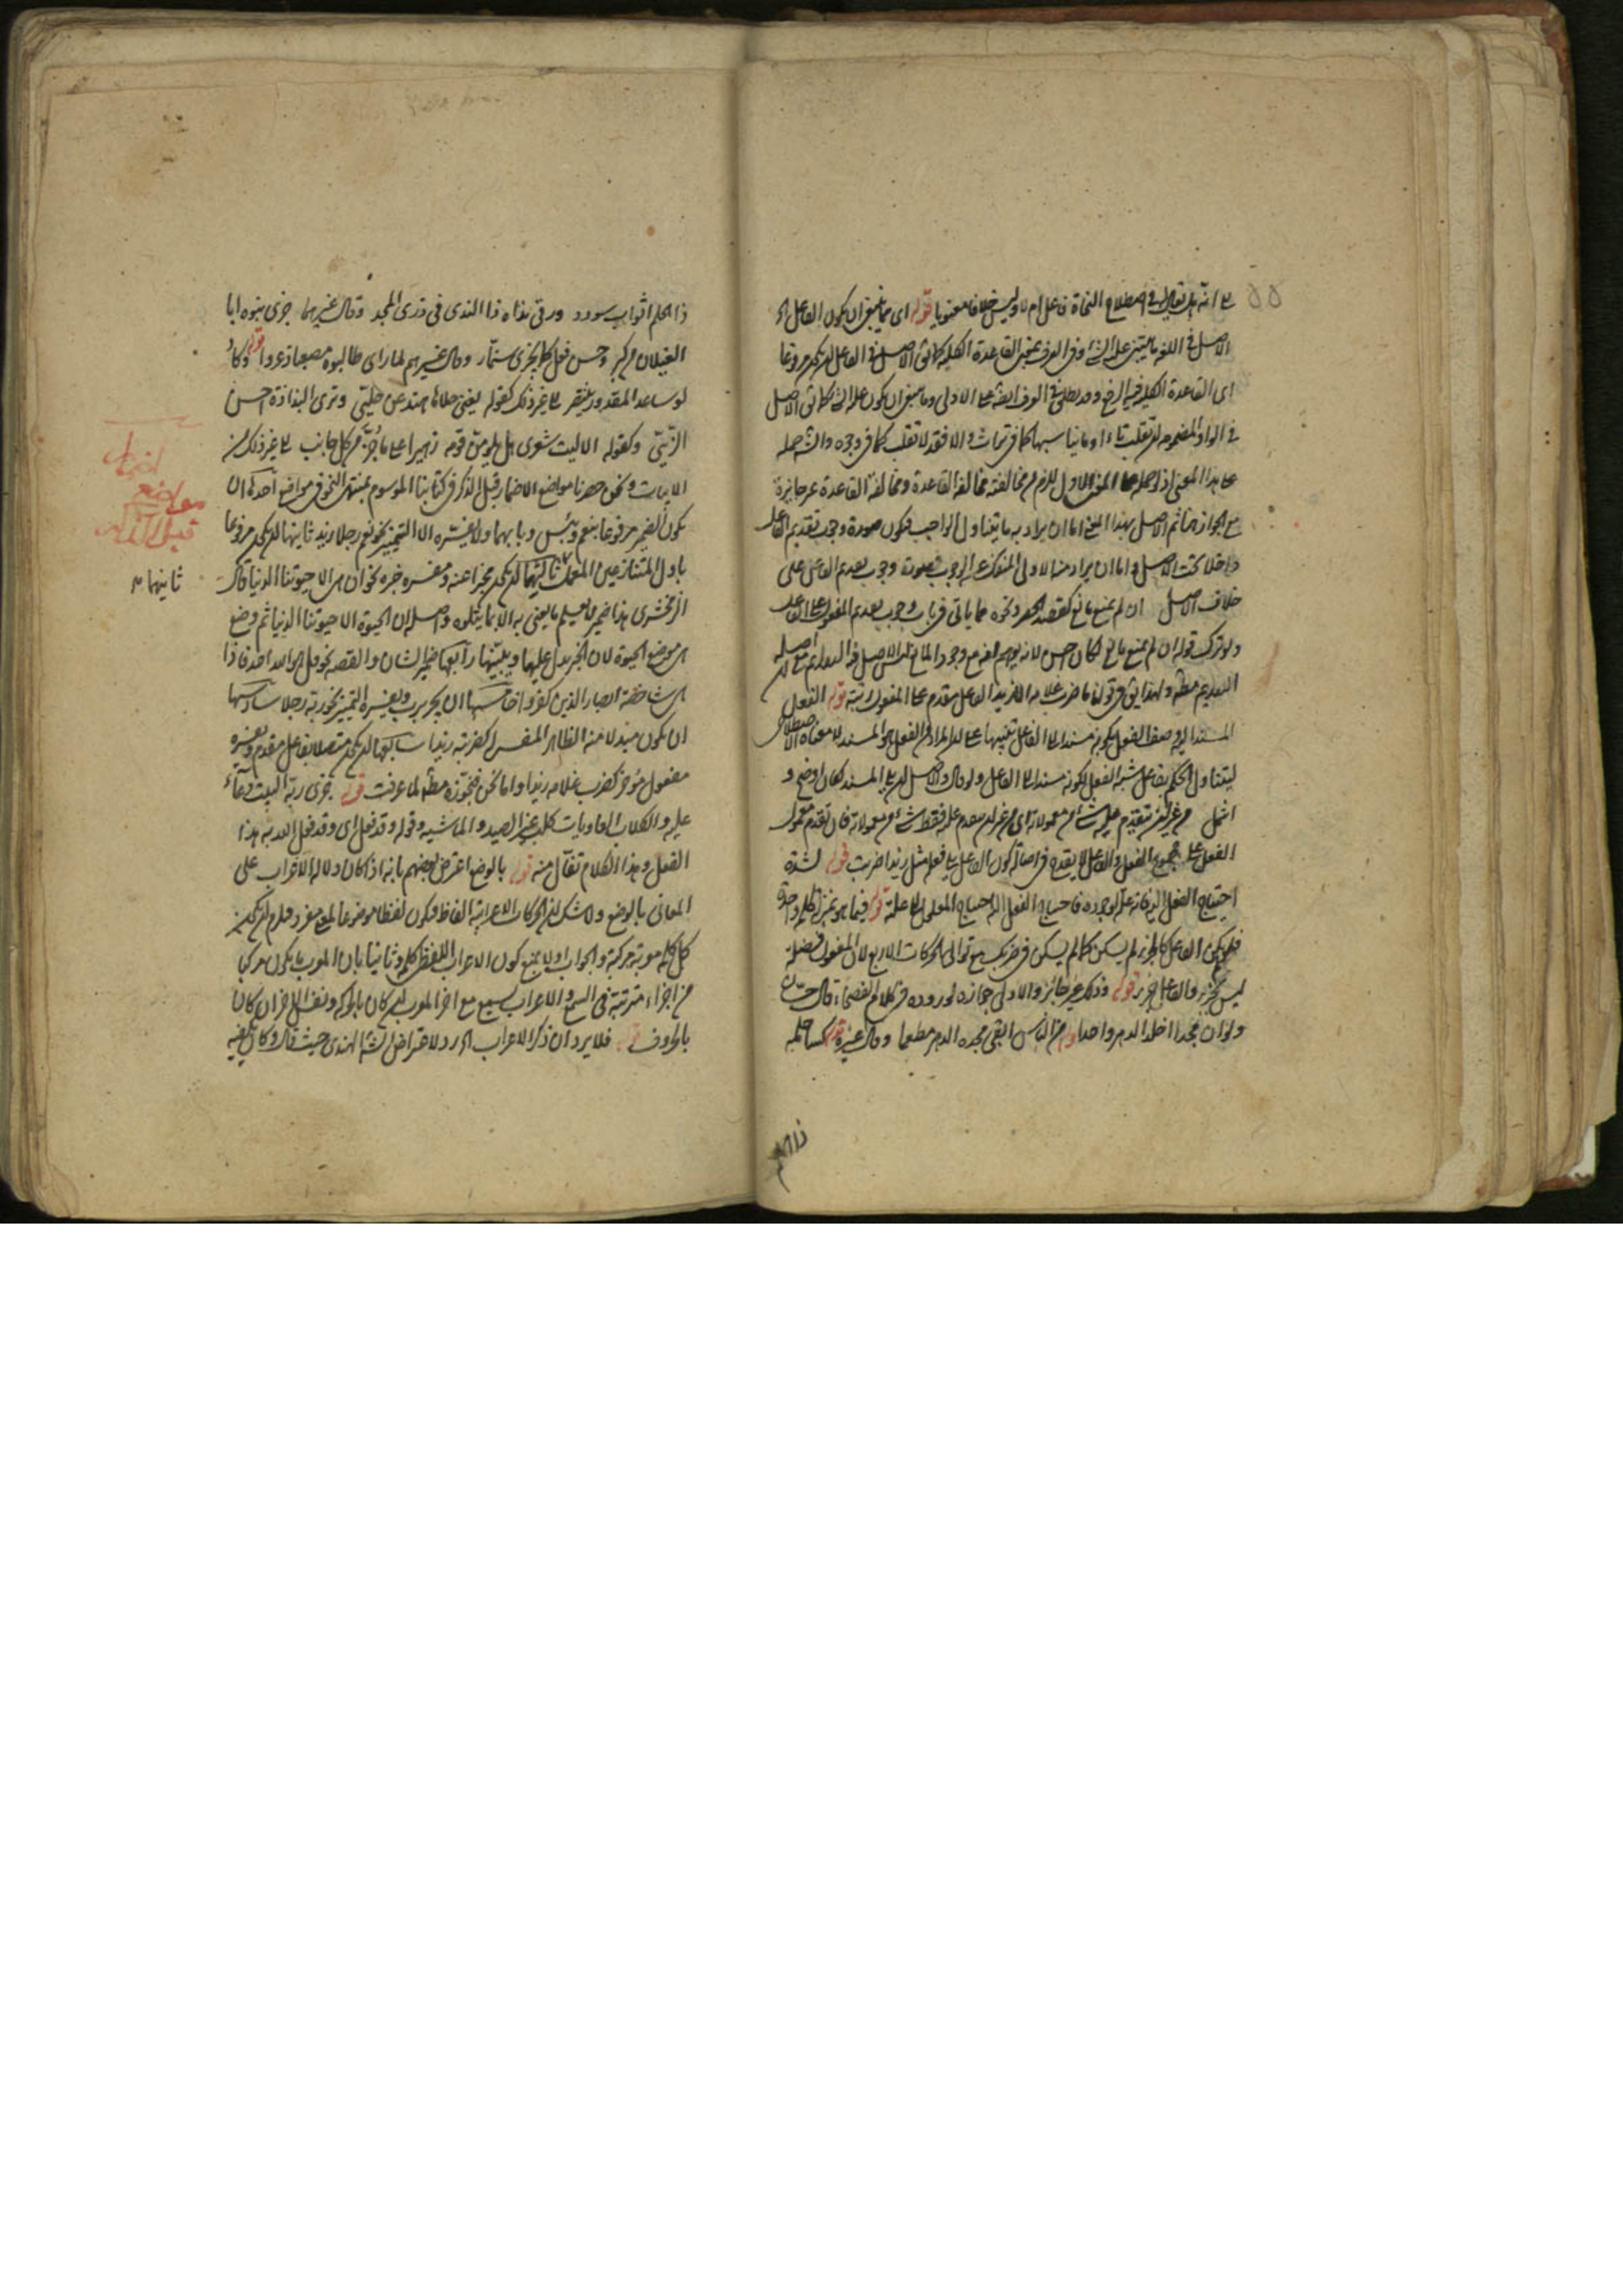 انه هل يقال في اصطلاح النحاة فاعل ام لا وليس خلافا معنويا قوله اى مما ينبغى ان يكون الفاعل
الاصل في اللغة ما يبتنى عليه الشئ وفى العرف بمعنى القاعدة الكلية كما ق الاصل في الفاعل ان يكون مرفوعا
اى القاعدة الكلية فيه الرفع وقد يطلق في العرف ايضا على الاولى وما ينبغى ان يكون عليه الشئ كما ق الاصل
في الواو المضمومة ان تقلب تاء او ما يناسبها كما في تراث والا فقد لا تقلب كما في وجوه والش حمله
على هذا المعنى اذ لو حمله على المعنى الاول للزم من مخالفته مخالفة القاعدة ومخالفة القاعدة غير جايزة
مع الجواز هنا ثم الاصل بهذا المعنى اما ان يراد به ما يتناول الواجب فيكون صورة وجوب تقديم الفاعل
داخلا تحت الاصل واما ان يراد منه الاولى المنفك عن الوجوب فصورة وجوب تقديم الفاعل على
خلاف الاصل ان لم يمنع مانع كقصد الحصر ونحوه مما ياتى في باب وجوب تقديم المفعول على الفاعل
ولو ترك قوله ان لم يمنع مانع لكان احسن لانه يوهم انه مع وجود المانع ليس الاصل فيه التقديم مع ان اصله
التقديم مطلقا ولهذا ق في قولنا ما ضرب غلامه الا زيد الفاعل مقدم على المفعول رتبة قوله الفعل
المسند اليه وصف الفعل بكونه مسندا الى الفاعل تنبيها على ان المراد من الفعل هو المسند لا معناه الاصطلاحى
ليتناول الحكم بفاعل شبه الفعل لكونه مسندا الى الفاعل ولو قال والاصل ان يلى المسند لكان اوضح و
اشمل من غير ان يتقدم عليه شئ من معمولاته اى من غير ان يتقدم عليه فقط شئ من معمولاته فان تقدم معمول
الفعل على مجموع الفعل والفاعل لا يقدح في اصالة كون الفاعل يلى فعله مثل زيدا ضربت قوله لشدة
احتياج الفعل اليه فانه علة لوجوده فاحتياج الفعل اليه احتياج المعلول الى علته قوله فيما هو بمنزلة كلمة واحدة
فلو لم يكن الفاعل كالجزء لم يسكن كما لم يسكن في ضربك مع توالى الحركات الاربع لان المفعول فضلة
ليس بجزء والفاعل جزء قوله وذلك غير جائز والاولى جوازه لوروده في كلام الفصحاء قال حسان
ولو ان مجدا اخلد الدهر واحدا من الناس ابقى مجده الدهر مطعما وقال غيره كسا حلمه
ذا الحلم
ذا الحلم اثواب سودد ورقى نداه ذا الندى في ذرى المجد وقال غيرهما جزى بنوه ابا
الغيلان عن كبر وحسن فعل كما يجزى سنمار وقال غيرهم لما راى طالبوه مصعبا ذعروا وكاد
لو ساعد المقدور ينتصر الى غير ذلك كقوله يغنى حلاها هند عن حليتى وترى البذاذة احسن
الزينتي وكقوله الا ليت شعرى هل يلومن قومه زهيرا على ما جر من كل جانب الى غير ذلك من
الابيات ونحن حصرنا مواضع الاضمار قبل الذكر في كتابنا الموسوم بمنتهى النحو في مواضع احدها ان
يكون الضمير مرفوعا بنعم وبئس وبابهما ولا يفسره الا التمييز نحو نعم رجلا زيد ثانيها ان يكون مرفوعا
باول المتنازعين المعمل ثالثها ان يكون مخبرا عنه ومفسره خبره نحو ان هى الا حيوتنا الدنيا قال
الزمخشرى هذا ضمير لا يعلم ما يعنى به الا بما يتلوه واصله ان الحيوة الا حيوتنا الدنيا ثم وضع
هى موضع الحيوة لان الخبر يدل عليها ويبينها رابعها ضمير الشان والقصه نحو قل هو الله احد فاذا
هى شاخصة ابصار الذين كفروا خامسها ان يجر برب ويفسره التمييز نحو ربه رجلا سادسها
ان يكون مبدلا منه الظاهر المفسر له كضربته زيدا سابعها ان يكون متصلا بفاعل مقدم ويفسره
مفعول مؤخر كضرب غلامه زيدا واما نحن فنجوزه مطلقا لما عرفت قوله جزى ربه البيت دعاء
عليه والكلاب العاويات كلاب غير الصيد والماشيه وقوله وقد فعل اى وقد فعل الله به هذا
الفعل وهذا الكلام تفأل منه قوله بالوضع اعترض بعضهم بانه اذا كان دلالة الاعراب على
المعانى بالوضع ولا شك ان الحركات الاعرابية الفاظ فيكون لفظا موضوعا لمعنى مفرد فلزم ان يكون
كل كلمة معربة مركبة والجواب اولا بمنع كون الاعراب اللفظى كلمة وثانيا بان المعرب ما يكون مركبا
من اجزاء مترتبة في السمع والاعراب يسمع مع آخر المعرب ان كان بالحركة ونفس الاخر ان كان
بالحروف فلا يرد ان ذكر الاعراب اه رد لاعتراض الش الهندى حيث قال وكان يكفيه
اضمار
مواضع
قبل الذكر
ثانيها